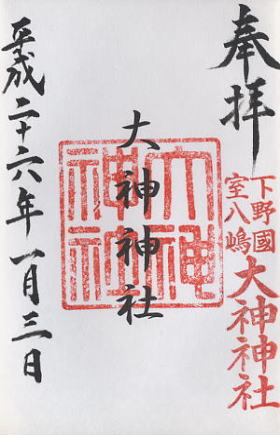 奉拝
下野國
室八嶋
大神神社
大神神社
大神神社
平成二十六年一月三日